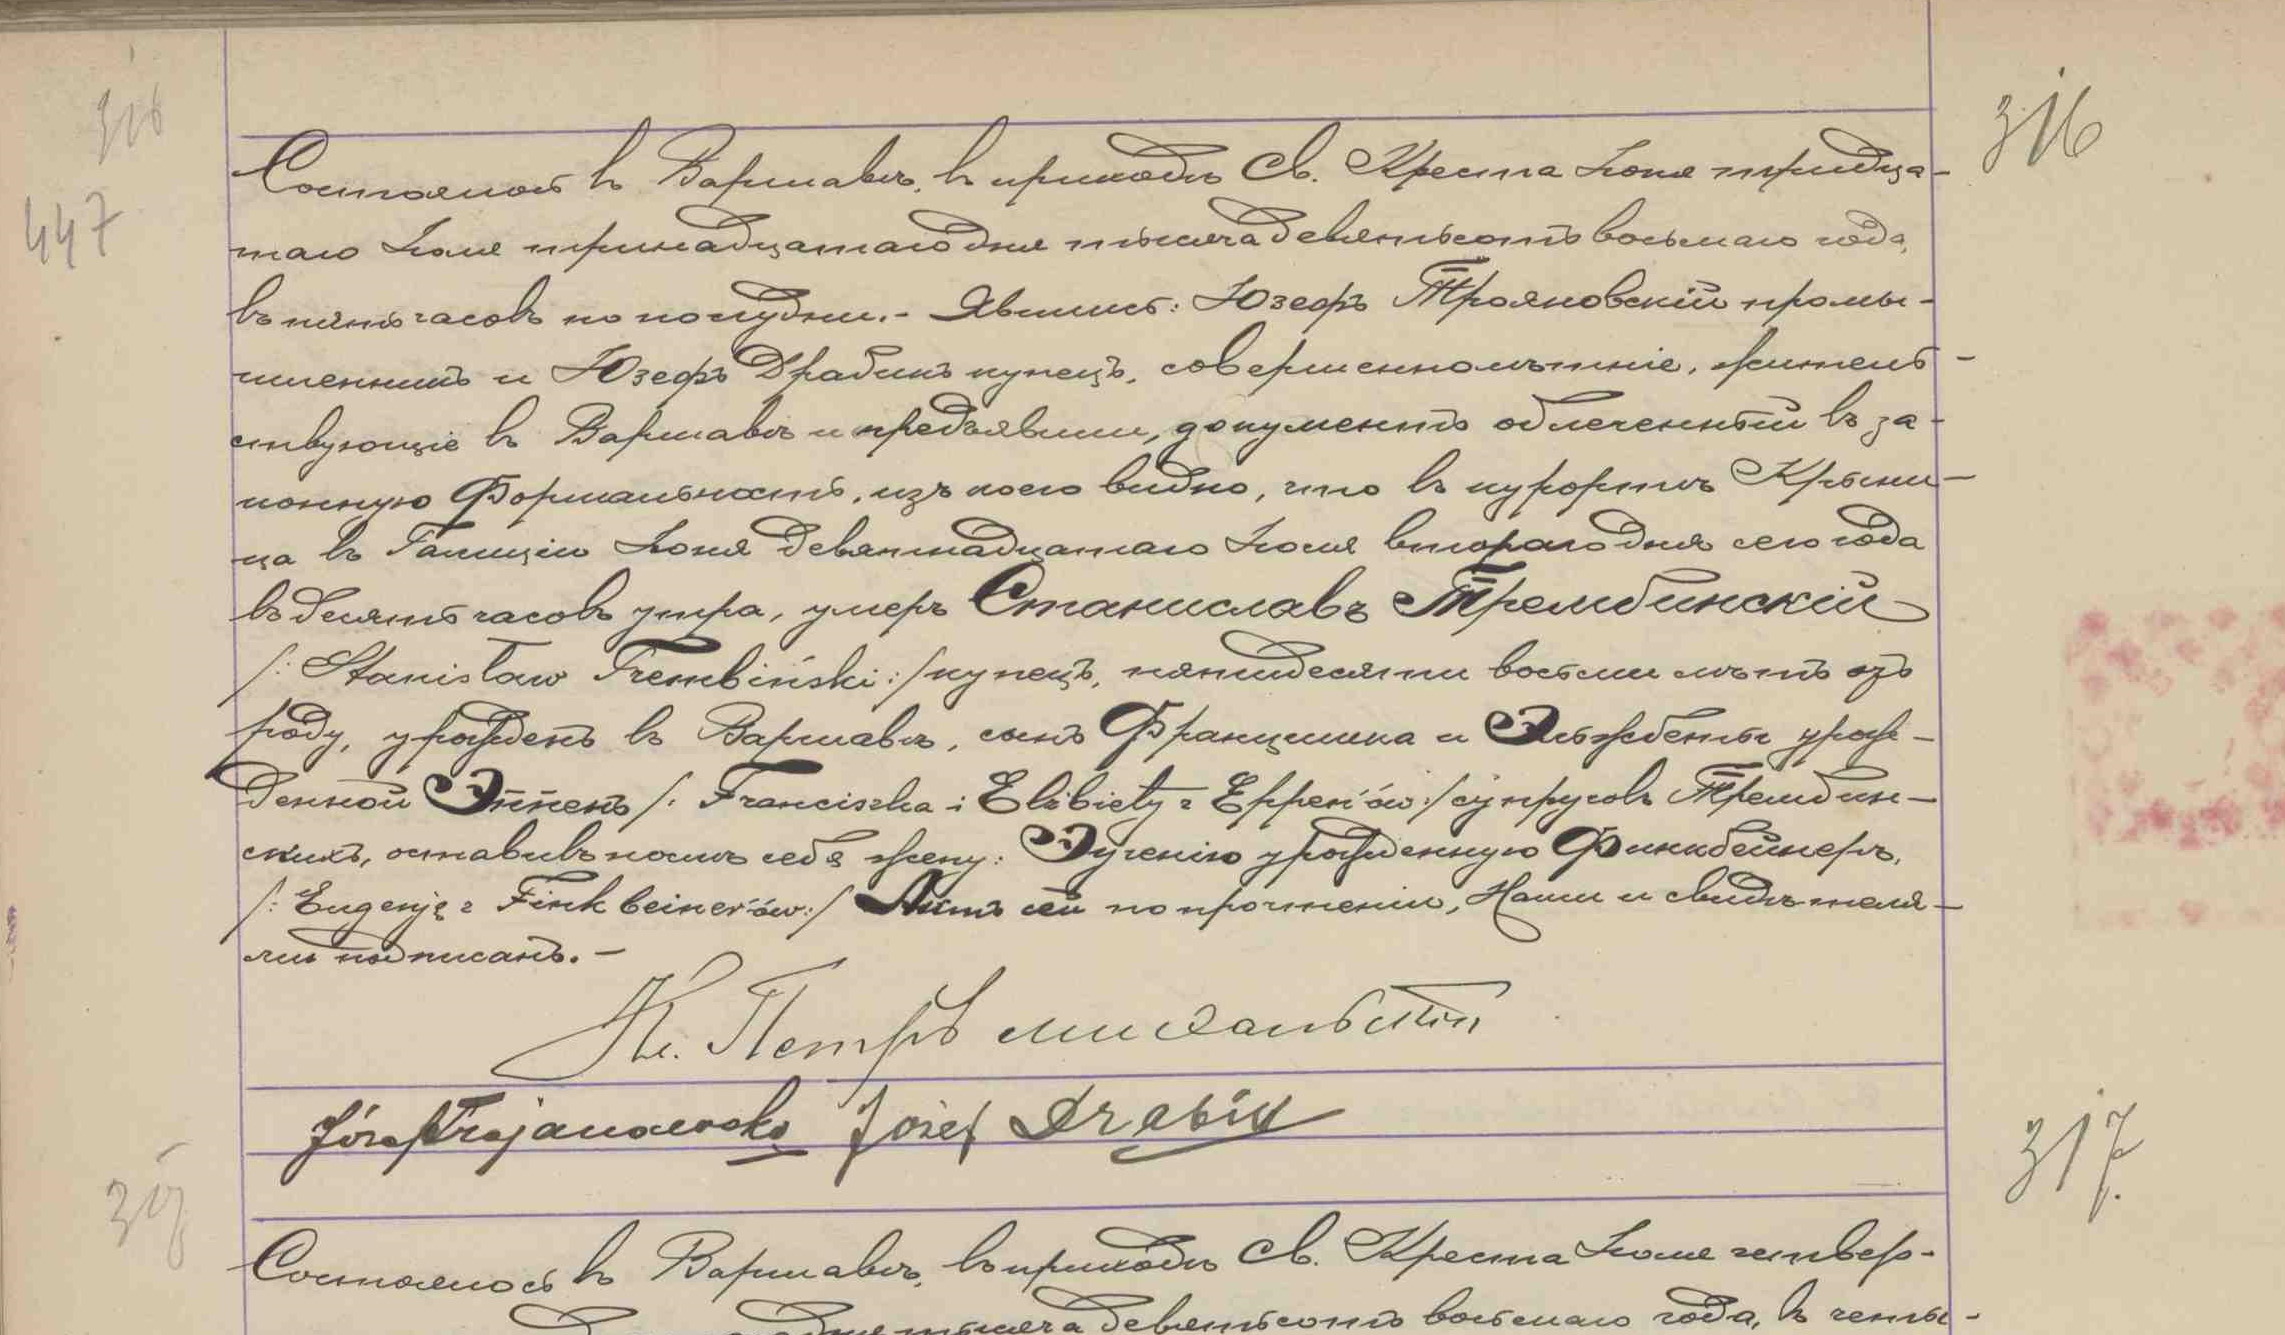 316
316
447
Состоялось въ Варшавѣ, въ приходѣ Св. Креста Іюня тридца-
таго Іюля тринадцатаго дня тысяча девятьсотъ восьмаго года,
въ пять часовъ по полудни.- Явились: Юзефъ Трояновскій промы-
шленникъ и Юзефъ Драбикъ купецъ, совершеннолѣтніе, житель-
ствующіе въ Варшавѣ и предъявили, документъ облеченный въ за-
конную формальность, изъ коего видно, что въ курортѣ Крыни-
ца въ Галиціи Іюня девятнадцатаго Іюля втораго дня сего года
въ десять часовъ утра, умеръ Станиславъ Трембинскій
/: Stanisław Trembiński :/ купецъ, пятидесяти восьми лѣтъ отъ
роду, урожденъ въ Варшавѣ, сынъ Францишка и Эльжбеты урож-
денной Эппенъ /: Franciszka i Elżbiety z Eppen'ów :/ супруговъ Трембин-
скихъ, оставивъ послѣ себя жену: Эугенію урожденную Финкбейнеръ,
/: Eugenję z Finkbeiner'ów :/ Актъ сей по прочтеніи, Нами и свидѣтеля-
ми подписанъ.-
Кс. Петръ
Józef Trojanowski Józef Drabik
317
317.
Состоялось въ Варшавѣ, въ приходѣ Св. Креста Іюля четвер-
дня тысяча девятьсотъ восьмаго года, въ четы-